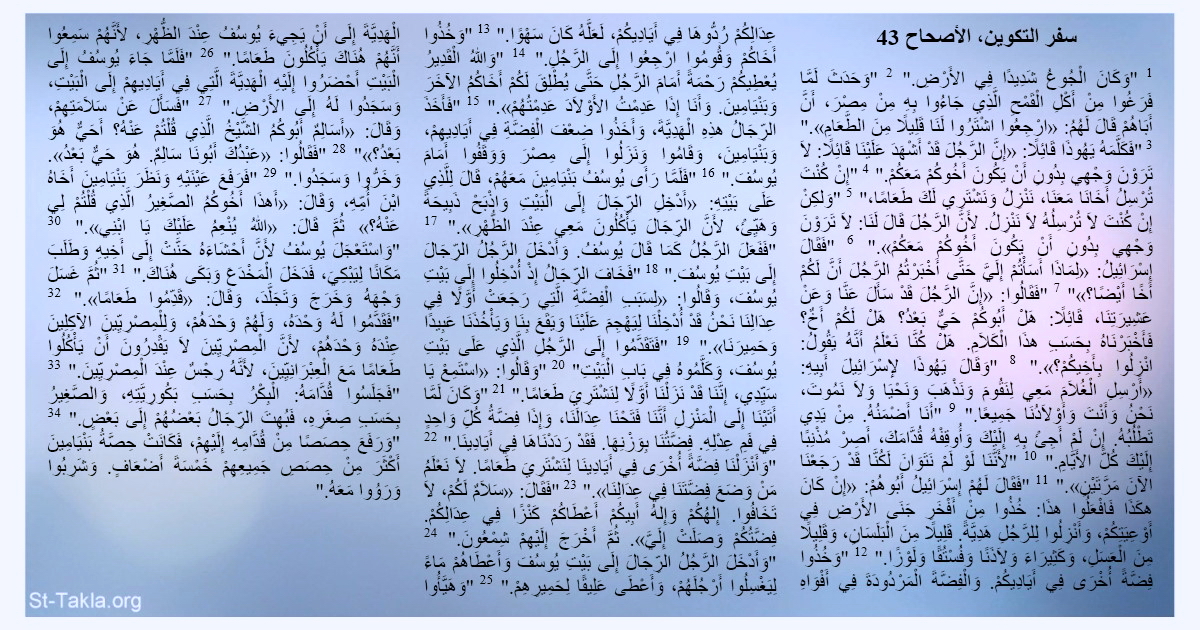 سفر التكوين، الأصحاح 43
1 "وَكَانَ الْجُوعُ شَدِيدًا فِي الأَرْضِ." 2 "وَحَدَثَ لَمَّا
فَرَغُوا مِنْ أَكْلِ الْقَمْحِ الَّذِي جَاءُوا بِهِ مِنْ مِصْرَ، أَنَّ
أَبَاهُمْ قَالَ لَهُمُ: «ارْجِعُوا اشْتَرُوا لَنَا قَلِيلاً مِنَ الطَّعَامِ»."
3 "فَكَلَّمَهُ يَهُوذَا قَائِلاً: «إِنَّ الرَّجُلَ قَدْ أَشْهَدَ عَلَيْنَا قَائِلاً: لاَ
تَرَوْنَ وَجْهِي بِدُونِ أَنْ يَكُونَ أَخُوكُمْ مَعَكُمْ." 4 "إِنْ كُنْتَ
تُرْسِلُ أَخَانَا مَعَنَا، نَنْزِلُ وَنَشْتَرِي لَكَ طَعَامًا،" 5 "وَلكِنْ
إِنْ كُنْتَ لاَ تُرْسِلُهُ لاَ نَنْزِلُ. لأَنَّ الرَّجُلَ قَالَ لَنَا: لاَ تَرَوْنَ
وَجْهِي بِدُونِ أَنْ يَكُونَ أَخُوكُمْ مَعَكُمْ»." 6 "فَقَالَ
إِسْرَائِيلُ: «لِمَاذَا أَسَأْتُمْ إِلَيَّ حَتَّى أَخْبَرْتُمُ الرَّجُلَ أَنَّ لَكُمْ
أَخًا أَيْضًا؟»" 7 "فَقَالُوا: «إِنَّ الرَّجُلَ قَدْ سَأَلَ عَنَّا وَعَنْ
عَشِيرَتِنَا، قَائِلاً: هَلْ أَبُوكُمْ حَيٌّ بَعْدُ؟ هَلْ لَكُمْ أَخٌ؟
فَأَخْبَرْنَاهُ بِحَسَبِ هذَا الْكَلاَمِ. هَلْ كُنَّا نَعْلَمُ أَنَّهُ يَقُولُ:
انْزِلُوا بِأَخِيكُمْ؟»." 8 "وَقَالَ يَهُوذَا لإِسْرَائِيلَ أَبِيهِ:
«أَرْسِلِ الْغُلاَمَ مَعِي لِنَقُومَ وَنَذْهَبَ وَنَحْيَا وَلاَ نَمُوتَ،
نَحْنُ وَأَنْتَ وَأَوْلاَدُنَا جَمِيعًا." 9 "أَنَا أَضْمَنُهُ. مِنْ يَدِي
تَطْلُبُهُ. إِنْ لَمْ أَجِئْ بِهِ إِلَيْكَ وَأُوقِفْهُ قُدَّامَكَ، أَصِرْ مُذْنِبًا
إِلَيْكَ كُلَّ الأَيَّامِ." 10 "لأَنَّنَا لَوْ لَمْ نَتَوَانَ لَكُنَّا قَدْ رَجَعْنَا
الآنَ مَرَّتَيْنِ»." 11 "فَقَالَ لَهُمْ إِسْرَائِيلُ أَبُوهُمْ: «إِنْ كَانَ
هكَذَا فَافْعَلُوا هذَا: خُذُوا مِنْ أَفْخَرِ جَنَى الأَرْضِ فِي
أَوْعِيَتِكُمْ، وَأَنْزِلُوا لِلرَّجُلِ هَدِيَّةً. قَلِيلاً مِنَ الْبَلَسَانِ، وَقَلِيلاً
مِنَ الْعَسَلِ، وَكَثِيرَاءَ وَلاَذَنًا وَفُسْتُقًا وَلَوْزًا." 12 "وَخُذُوا
فِضَّةً أُخْرَى فِي أَيَادِيكُمْ. وَالْفِضَّةَ الْمَرْدُودَةَ فِي أَفْوَاهِ
عِدَالِكُمْ رُدُّوهَا فِي أَيَادِيكُمْ، لَعَلَّهُ كَانَ سَهْوًا." 13 "وَخُذُوا
أَخَاكُمْ وَقُومُوا ارْجِعُوا إِلَى الرَّجُلِ." 14 "وَاللهُ الْقَدِيرُ
يُعْطِيكُمْ رَحْمَةً أَمَامَ الرَّجُلِ حَتَّى يُطْلِقَ لَكُمْ أَخَاكُمُ الآخَرَ
وَبَنْيَامِينَ. وَأَنَا إِذَا عَدِمْتُ الأَوْلاَدَ عَدِمْتُهُمْ»." 15 "فَأَخَذَ
الرِّجَالُ هذِهِ الْهَدِيَّةَ، وَأَخَذُوا ضِعْفَ الْفِضَّةِ فِي أَيَادِيهِمْ،
وَبَنْيَامِينَ، وَقَامُوا وَنَزَلُوا إِلَى مِصْرَ وَوَقَفُوا أَمَامَ
يُوسُفَ." 16 "فَلَمَّا رَأَى يُوسُفُ بَنْيَامِينَ مَعَهُمْ، قَالَ لِلَّذِي
عَلَى بَيْتِهِ: «أَدْخِلِ الرِّجَالَ إِلَى الْبَيْتِ وَاذْبَحْ ذَبِيحَةً
وَهَيِّئْ، لأَنَّ الرِّجَالَ يَأْكُلُونَ مَعِي عِنْدَ الظُّهْرِ»." 17
"فَفَعَلَ الرَّجُلُ كَمَا قَالَ يُوسُفُ. وَأَدْخَلَ الرَّجُلُ الرِّجَالَ
إِلَى بَيْتِ يُوسُفَ." 18 "فَخَافَ الرِّجَالُ إِذْ أُدْخِلُوا إِلَى بَيْتِ
يُوسُفَ، وَقَالُوا: «لِسَبَبِ الْفِضَّةِ الَّتِي رَجَعَتْ أَوَّلاً فِي
عِدَالِنَا نَحْنُ قَدْ أُدْخِلْنَا لِيَهْجِمَ عَلَيْنَا وَيَقَعَ بِنَا وَيَأْخُذَنَا عَبِيدًا
وَحَمِيرَنَا»." 19 "فَتَقَدَّمُوا إِلَى الرَّجُلِ الَّذِي عَلَى بَيْتِ
يُوسُفَ، وَكَلَّمُوهُ فِي بَابِ الْبَيْتِ" 20 "وَقَالُوا: «اسْتَمِعْ يَا
سَيِّدِي، إِنَّنَا قَدْ نَزَلْنَا أَوَّلاً لِنَشْتَرِيَ طَعَامًا." 21 "وَكَانَ لَمَّا
أَتَيْنَا إِلَى الْمَنْزِلِ أَنَّنَا فَتَحْنَا عِدَالَنَا، وَإِذَا فِضَّةُ كُلِّ وَاحِدٍ
فِي فَمِ عِدْلِهِ. فِضَّتُنَا بِوَزْنِهَا. فَقَدْ رَدَدْنَاهَا فِي أَيَادِينَا." 22
"وَأَنْزَلْنَا فِضَّةً أُخْرَى فِي أَيَادِينَا لِنَشْتَرِيَ طَعَامًا. لاَ نَعْلَمُ
مَنْ وَضَعَ فِضَّتَنَا فِي عِدَالِنَا»." 23 "فَقَالَ: «سَلاَمٌ لَكُمْ، لاَ
تَخَافُوا. إِلهُكُمْ وَإِلهُ أَبِيكُمْ أَعْطَاكُمْ كَنْزًا فِي عِدَالِكُمْ.
فِضَّتُكُمْ وَصَلَتْ إِلَيَّ». ثُمَّ أَخْرَجَ إِلَيْهِمْ شِمْعُونَ." 24
"وَأَدْخَلَ الرَّجُلُ الرِّجَالَ إِلَى بَيْتِ يُوسُفَ وَأَعْطَاهُمْ مَاءً
لِيَغْسِلُوا أَرْجُلَهُمْ، وَأَعْطَى عَلِيقًا لِحَمِيرِهِمْ." 25 "وَهَيَّأُوا
الْهَدِيَّةَ إِلَى أَنْ يَجِيءَ يُوسُفُ عِنْدَ الظُّهْرِ، لأَنَّهُمْ سَمِعُوا
أَنَّهُمْ هُنَاكَ يَأْكُلُونَ طَعَامًا." 26 "فَلَمَّا جَاءَ يُوسُفُ إِلَى
الْبَيْتِ أَحْضَرُوا إِلَيْهِ الْهَدِيَّةَ الَّتِي فِي أَيَادِيهِمْ إِلَى الْبَيْتِ،
وَسَجَدُوا لَهُ إِلَى الأَرْضِ." 27 "فَسَأَلَ عَنْ سَلاَمَتِهِمْ،
وَقَالَ: «أَسَالِمٌ أَبُوكُمُ الشَّيْخُ الَّذِي قُلْتُمْ عَنْهُ؟ أَحَيٌّ هُوَ
بَعْدُ؟»" 28 "فَقَالُوا: «عَبْدُكَ أَبُونَا سَالِمٌ. هُوَ حَيٌّ بَعْدُ».
وَخَرُّوا وَسَجَدُوا." 29 "فَرَفَعَ عَيْنَيْهِ وَنَظَرَ بَنْيَامِينَ أَخَاهُ
ابْنَ أُمِّهِ، وَقَالَ: «أَهذَا أَخُوكُمُ الصَّغِيرُ الَّذِي قُلْتُمْ لِي
عَنْهُ؟» ثُمَّ قَالَ: «اللهُ يُنْعِمُ عَلَيْكَ يَا ابْنِي»." 30
"وَاسْتَعْجَلَ يُوسُفُ لأَنَّ أَحْشَاءَهُ حَنَّتْ إِلَى أَخِيهِ وَطَلَبَ
مَكَانًا لِيَبْكِيَ، فَدَخَلَ الْمَخْدَعَ وَبَكَى هُنَاكَ." 31 "ثُمَّ غَسَلَ
وَجْهَهُ وَخَرَجَ وَتَجَلَّدَ، وَقَالَ: «قَدِّمُوا طَعَامًا»." 32
"فَقَدَّمُوا لَهُ وَحْدَهُ، وَلَهُمْ وَحْدَهُمْ، وَلِلْمِصْرِيِّينَ الآكِلِينَ
عِنْدَهُ وَحْدَهُمْ، لأَنَّ الْمِصْرِيِّينَ لاَ يَقْدِرُونَ أَنْ يَأْكُلُوا
طَعَامًا مَعَ الْعِبْرَانِيِّينَ، لأَنَّهُ رِجْسٌ عِنْدَ الْمِصْرِيِّينَ." 33
"فَجَلَسُوا قُدَّامَهُ: الْبِكْرُ بِحَسَبِ بَكُورِيَّتِهِ، وَالصَّغِيرُ
بِحَسَبِ صِغَرِهِ، فَبُهِتَ الرِّجَالُ بَعْضُهُمْ إِلَى بَعْضٍ." 34
"وَرَفَعَ حِصَصًا مِنْ قُدَّامِهِ إِلَيْهِمْ، فَكَانَتْ حِصَّةُ بَنْيَامِينَ
أَكْثَرَ مِنْ حِصَصِ جَمِيعِهِمْ خَمْسَةَ أَضْعَافٍ. وَشَرِبُوا
وَرَوُوا مَعَهُ."
St-Takla.org